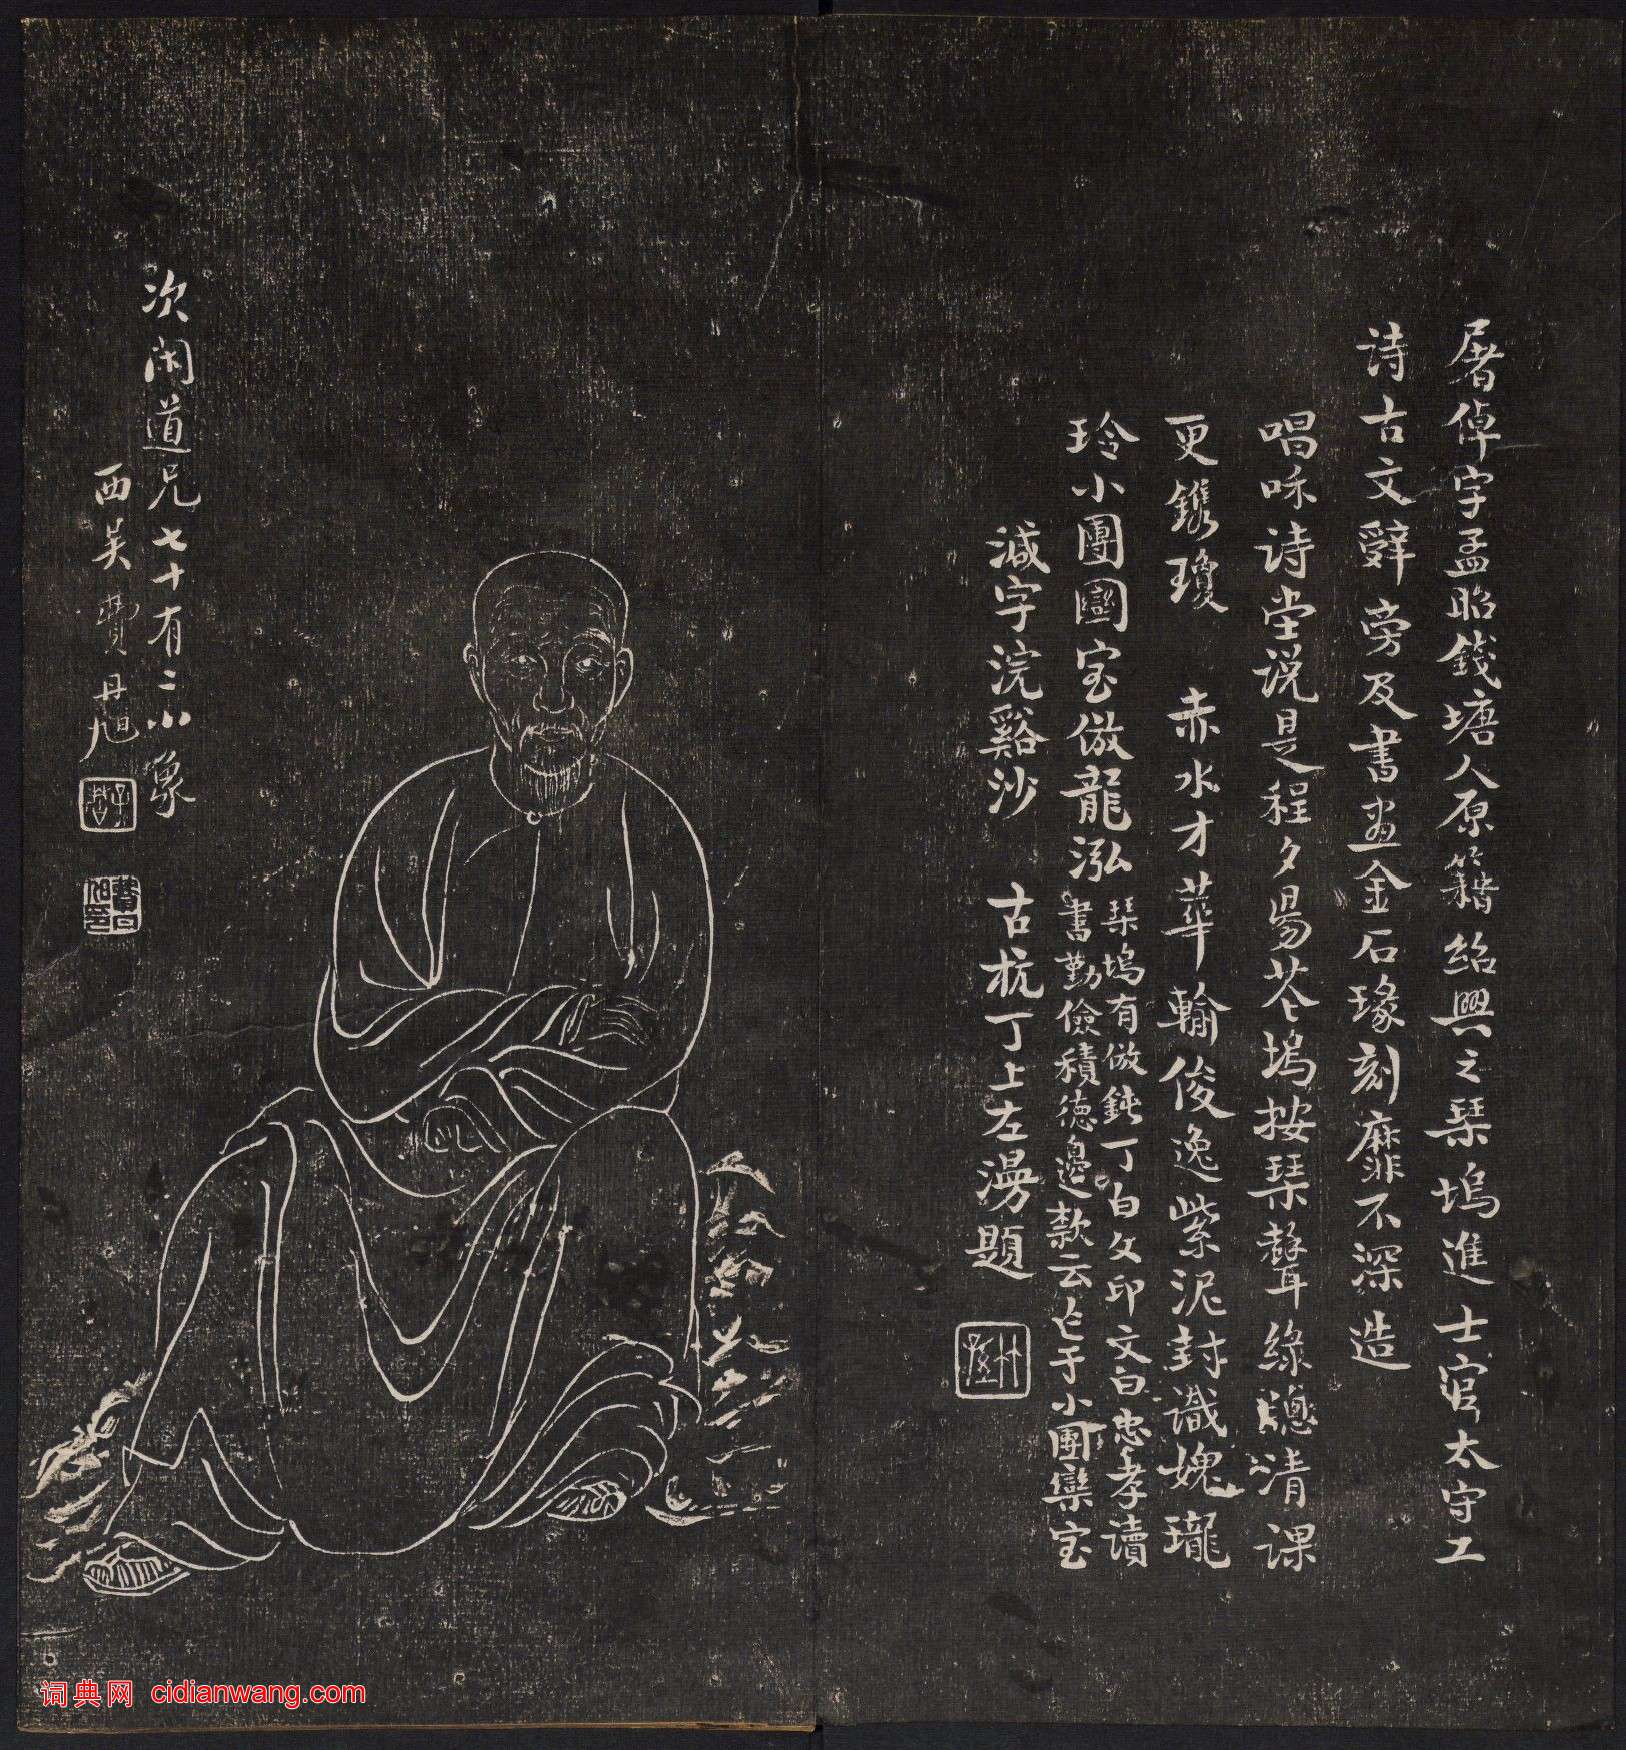 屠倬字孟昭錢塘人原籍紹興之琹塢進士官太守工
诗古文辤旁及書畫金石瑑刻靡不深造
唱咊诗堂说是程夕昜花塢按琹聲綠牕清課
更鐫瓊 赤水才華輸俊逸紫泥封識媿瓏
玲小團圞室倣龍泓
琹塢有倣鈍丁白文印文曰忠孝讀
書勤儉積德邊款云仿于小團欒室
減字浣谿沙 古杭丁上左漫題
次闲道兄七十有二小象
西吴費丹旭
词典网 cidianwang.com